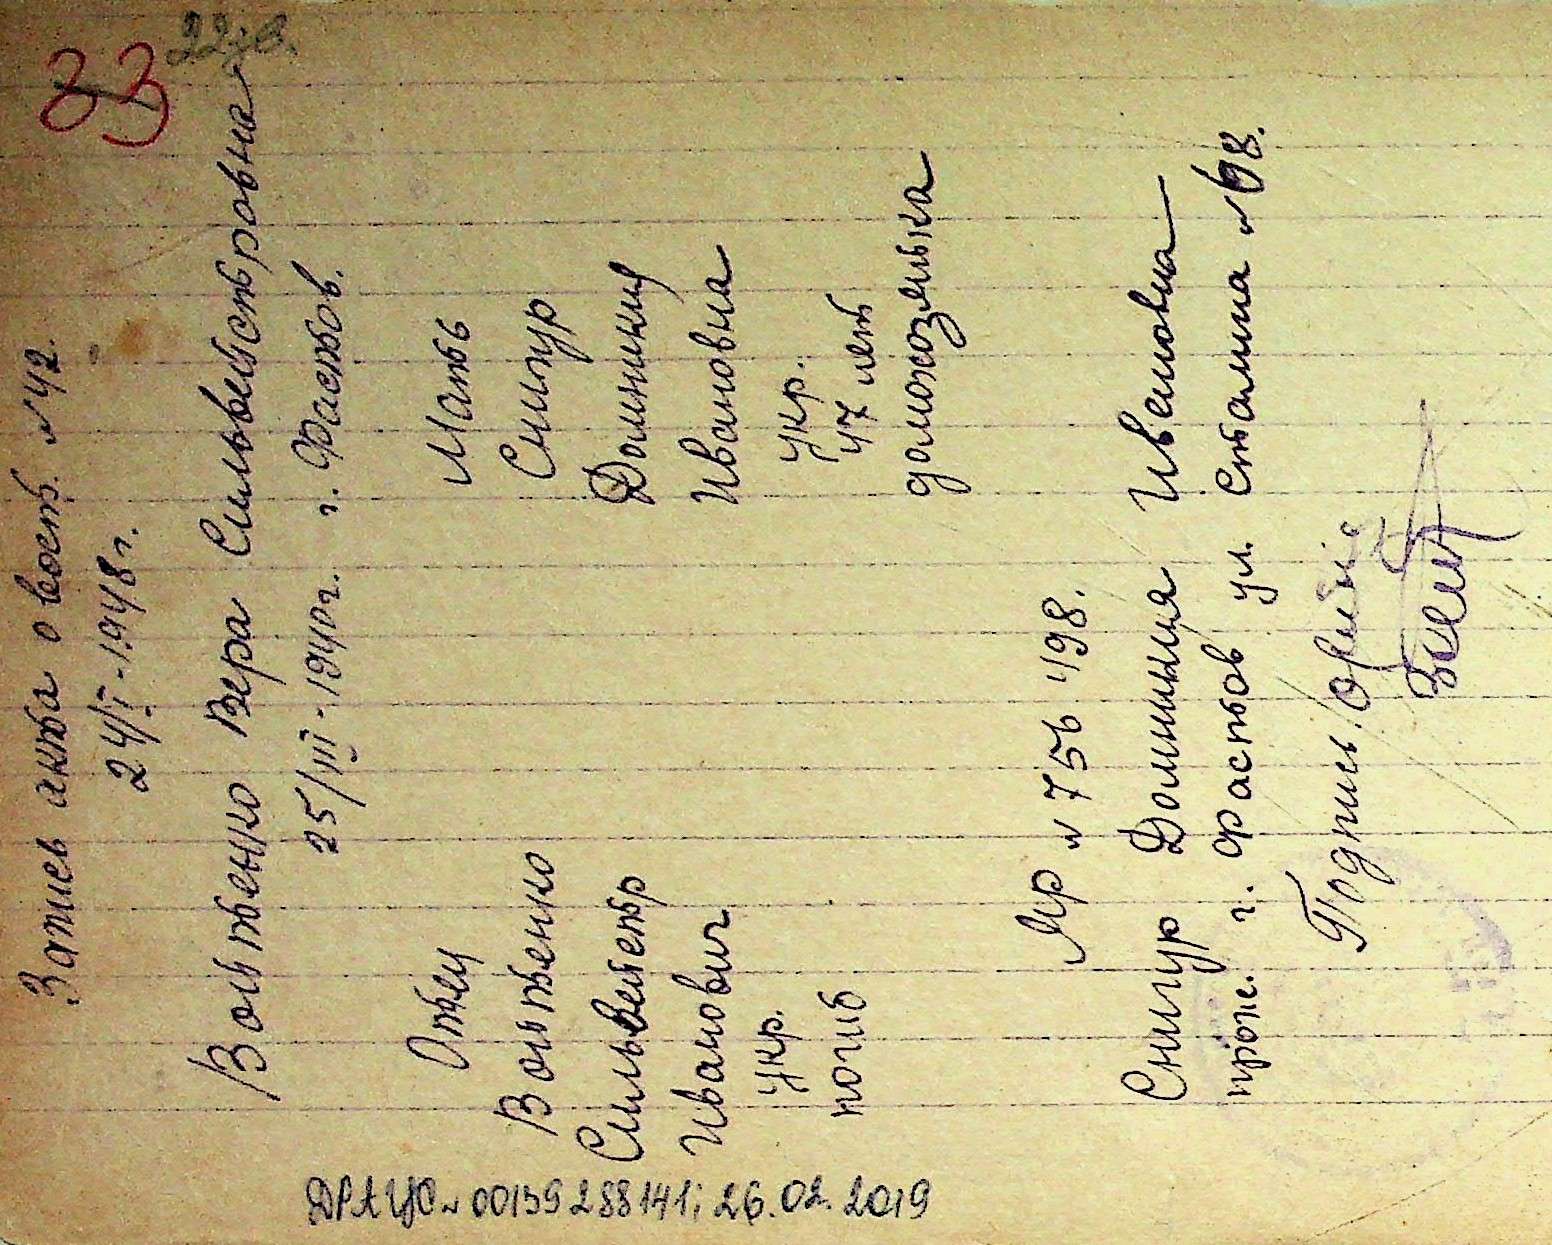 33
22зв.
Запись акта о восст. № 42.
24/I-1948 г.
Войтенко Вера Сильвестровна
25/III-1940 г. г. Фастов.
Отец
Войтенко
Сильвестр
Иванович
укр.
погиб
Мать
Снигур
Домникия
Ивановна
укр.
47 лет
домохозяйка
ЯР № 756498.
Снигур Домникия Ивановна
прож. г. Фастов ул. Сталина № 98.
Подпись
ДРАЦС № 00139288141; 26.02.2019